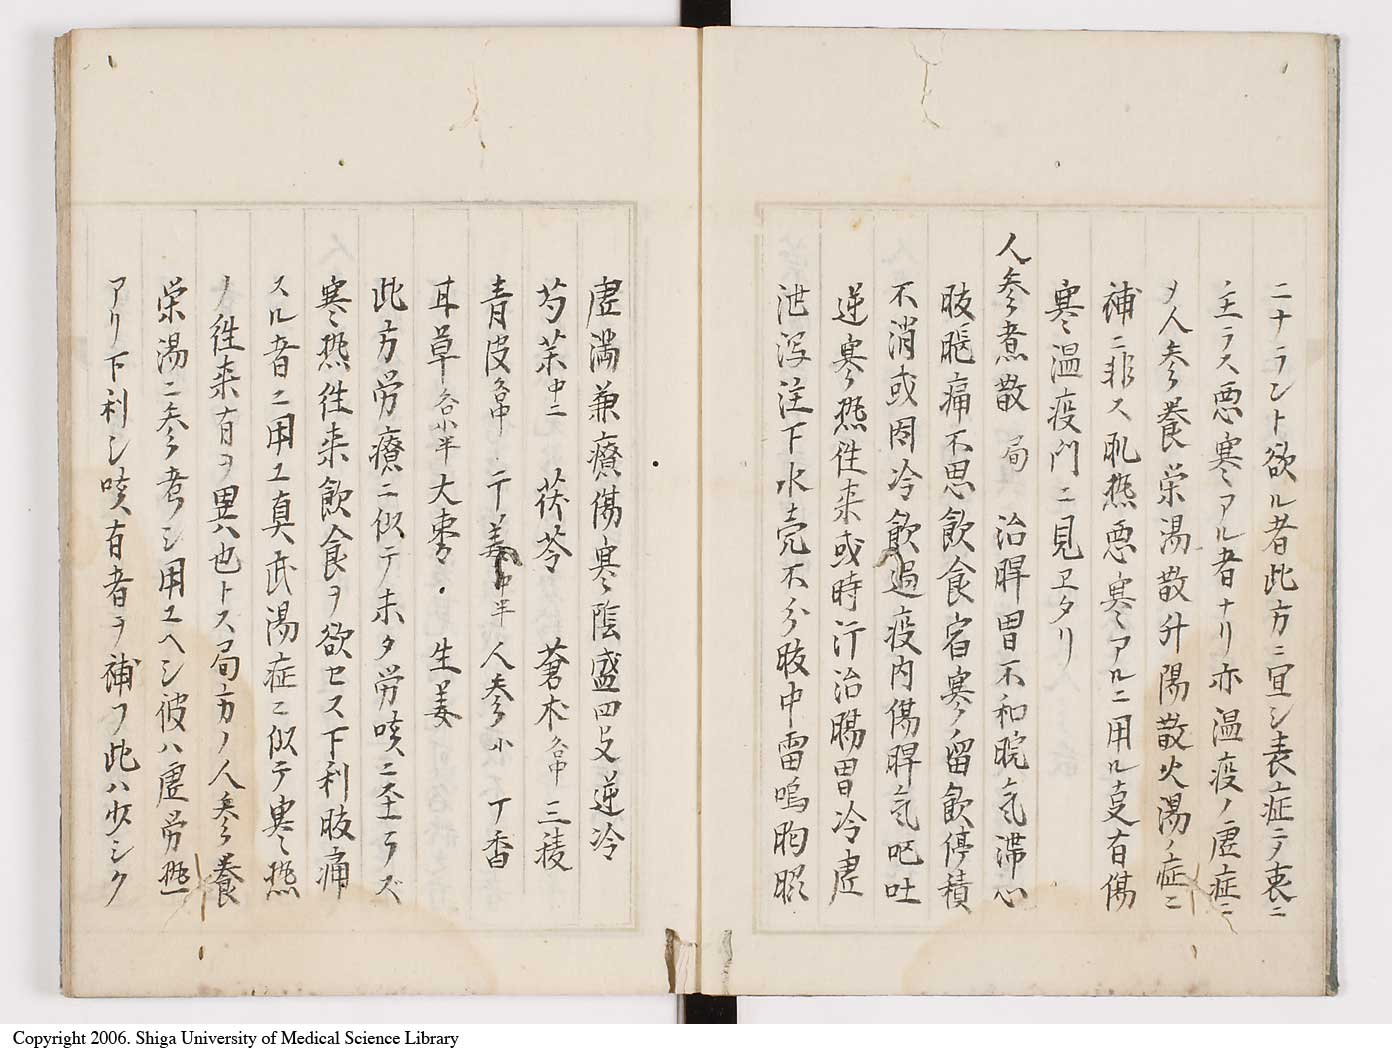 ニナラント欲ル者此方ニ宜シ表症ニテ表ニ
主ラス悪寒アル者ナリ亦温疫ノ虚症ニ
メ人参養栄湯散升陽散火湯ノ症ニ
補ニ非ス肌熱悪寒アルニ用ル支有傷
寒温疫門ニ見ヱタリ
人参煮散 局 治脾胃不和脘气滞心
腹脹痛不思飲食宿寒留飲停積
不消或因冷飲過度内傷脾气吧吐
逆寒熱往来或時汗治腸胃冷虚
泄瀉注下水壳不分腹中雷鳴胸膈
虚満兼療傷寒陰盛四支逆冷
芍茱中二 茯苓 蒼朮各中 三稜
青皮各中 干姜中半 人参小 丁香
甘草各小半 大棗 生姜
此方労療ニ似テ未タ労咳ニ至ラズ
寒熱往来飲食ヲ欲セス下利腹痛
スル者ニ用ユ真武湯症ニ似テ寒熱
ノ往来有ヲ異ハ也トス局方ノ人参養
栄湯ニ参考シ用ユヘシ彼ハ虚労熱
アリ下利シ咳有者ヲ補フ此ハ少シク
Copyright 2006. Shiga University of Medical Science Library